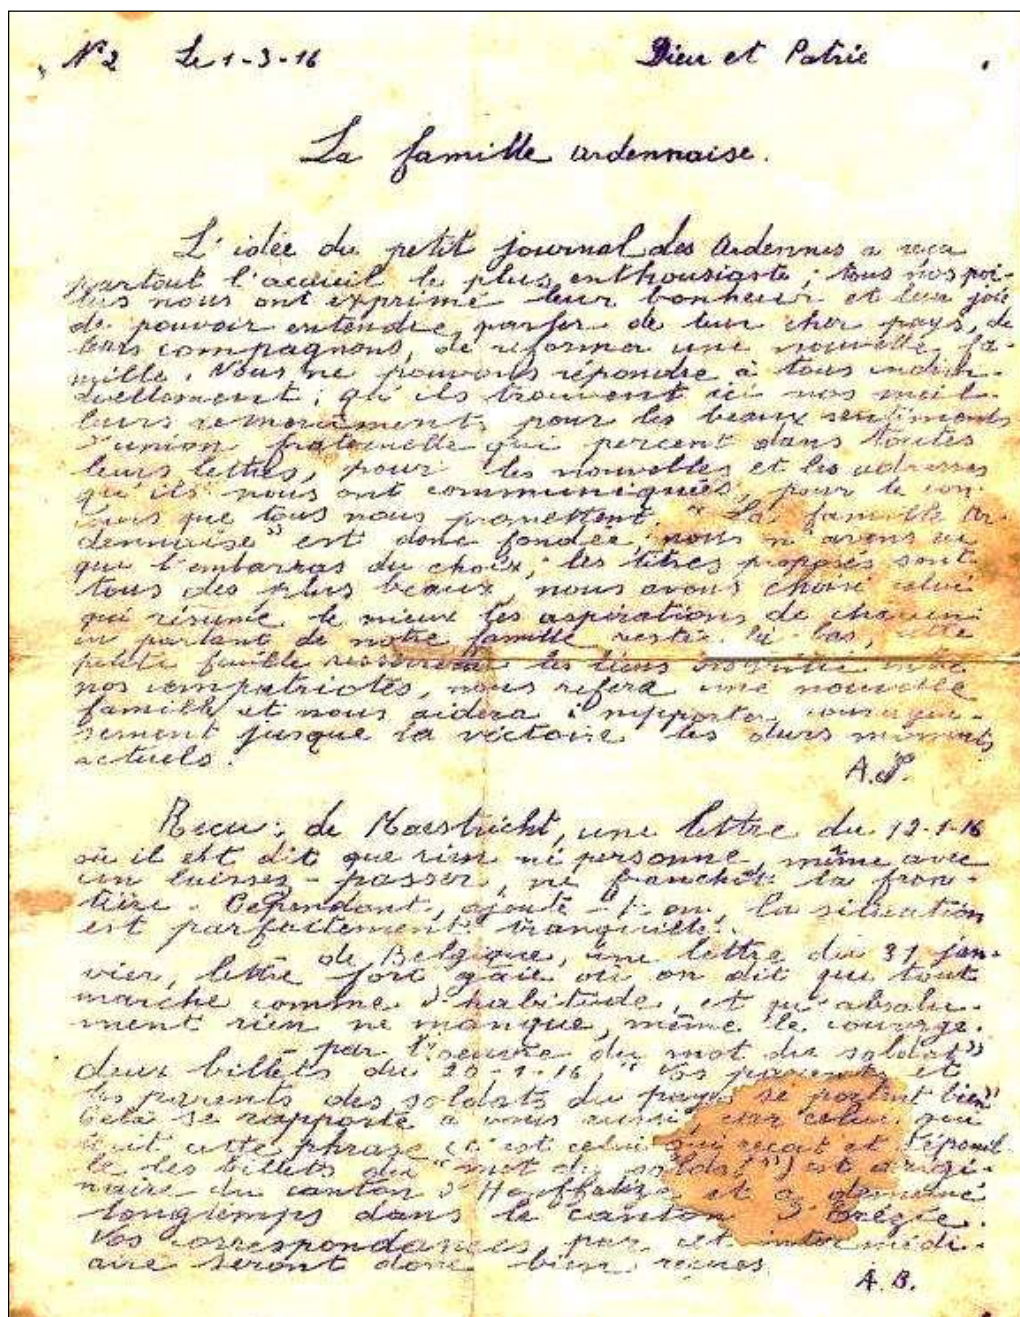 N° 2 Le 1-3-16 Dieu et Patrie
La famille ardennaise.
L'idée du petit journal des Ardennes a reçu
partout l'accueil le plus enthousiaste ; tous nos poi-
lus nous ont exprimé leur bonheur et leur joie
de pouvoir entendre parler de leur cher pays, de
leurs compagnons, de reformer une nouvelle fa-
mille. Nous ne pouvons répondre à tous indivi-
duellement ; qu'ils trouvent ici nos meil-
leurs remerciments pour les beaux sentiments
d'union fraternelle qui percent dans toutes
leurs lettres, pour les nouvelles et les adresses
qu'ils nous ont communiquées, pour le con-
cours que tous nous promettent. "La famille ar-
dennaise" est donc fondée, nous n'avons eu
que l'embarras du choix ; les titres proposés sont
tous des plus beaux, nous avons choisi celui
qui résume le mieux les aspirations de chacun
en parlant de notre famille restée là-bas, cette
petite feuille resserrera les liens entre
nos compatriotes, nous refera une nouvelle
famille et nous aidera à supporter courageu-
sement jusque la victoire les durs moments
actuels.
A.P.
Recu : de Maestricht, une lettre du 12-1-16
où il est dit que rien ni personne, même avec
un laisser-passer, ne franchit la fron-
tière. Cependant, ajoute-t-on, la situation
est parfaitement tranquille.
de Belgique, une lettre du 31 jan-
vier, lettre fort gaie où on dit que tout
marche comme d'habitude, et qu'absolu-
ment rien ne manque, même le courage.
par l'"oeuvre du mot du soldat"
deux billets du 20-1-16, "Vos parents et
les parents des soldats du pays se portent bien"
Cela se rapporte à vous aussi, car celui qui
écrit cette phrase (c'est celui qui reçoit et dépouil-
le les billets du "mot du soldat") est origi-
naire du canton d'Houffalize et a demeuré
longtemps dans le canton d'Erezée.
Vos correspondances par cet intermédi-
aire seront donc bien reçues.
A.B.